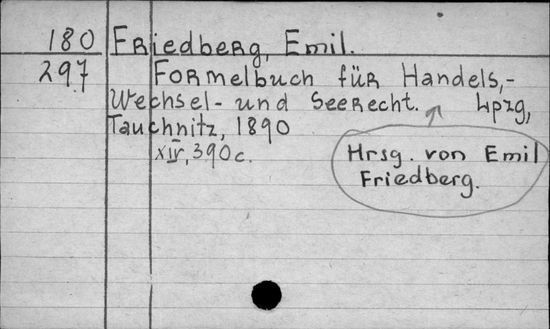 180 Friedberg, Emil.
297 Formelbuch für Handels,-
Wechsel- und Seerecht. Lpzg,
Tauchnitz, 1890
XIV, 390 c.
Hrsg. von Emil
Friedberg.